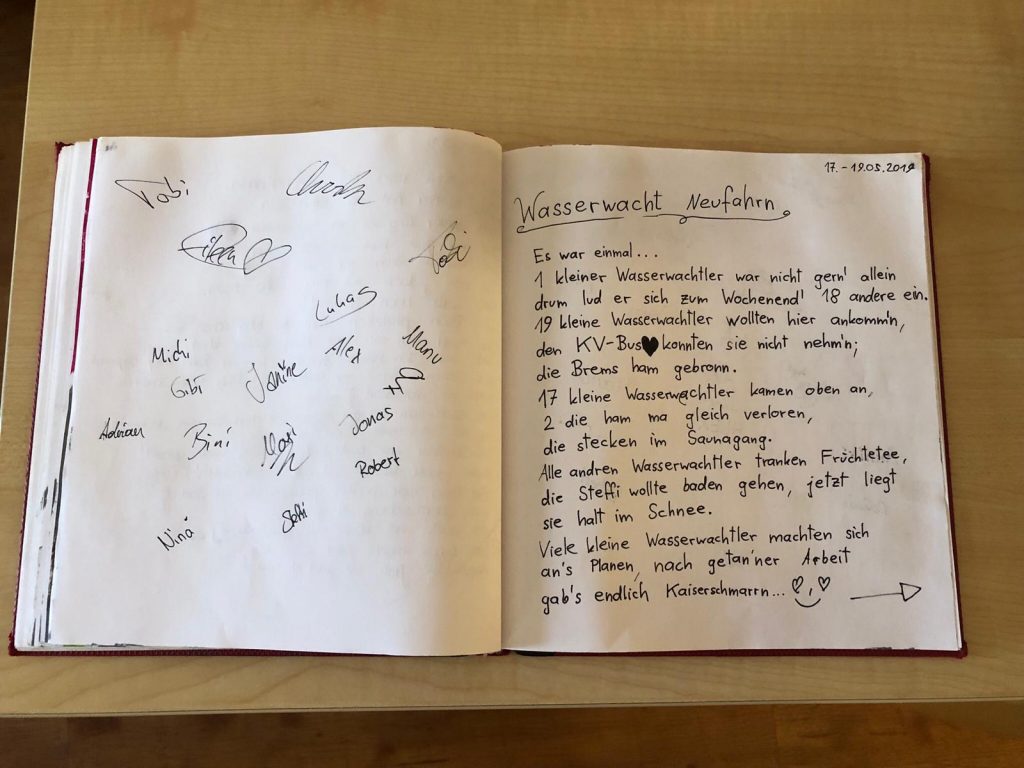 Tobi
Eileen
Tobi
Lukas
Manu
Alex
Michi
Janine
Gibi
Jonas
Adrian
Bini
Robert
Steffi
Nina
17. - 19.05.2019
Wasserwacht Neufahrn
Es war einmal...
1 kleiner Wasserwachtler war nicht gern' allein
drum lud er sich zum Wochenend' 18 andere ein.
19 kleine Wasserwachtler wollten hier ankomm'n,
den KV-Bus♥ konnten sie nicht nehm'n;
die Brems ham gebronn.
17 kleine Wasserwachtler kamen oben an,
2 die ham ma gleich verloren,
die stecken im Saunagang.
Alle andren Wasserwachtler tranken Früchtetee,
die Steffi wollte baden gehen, jetzt liegt
sie halt im Schnee.
Viele kleine Wasserwachtler machten sich
an's Planen, nach getan'ner Arbeit
gab's endlich Kaiserschmarrn...